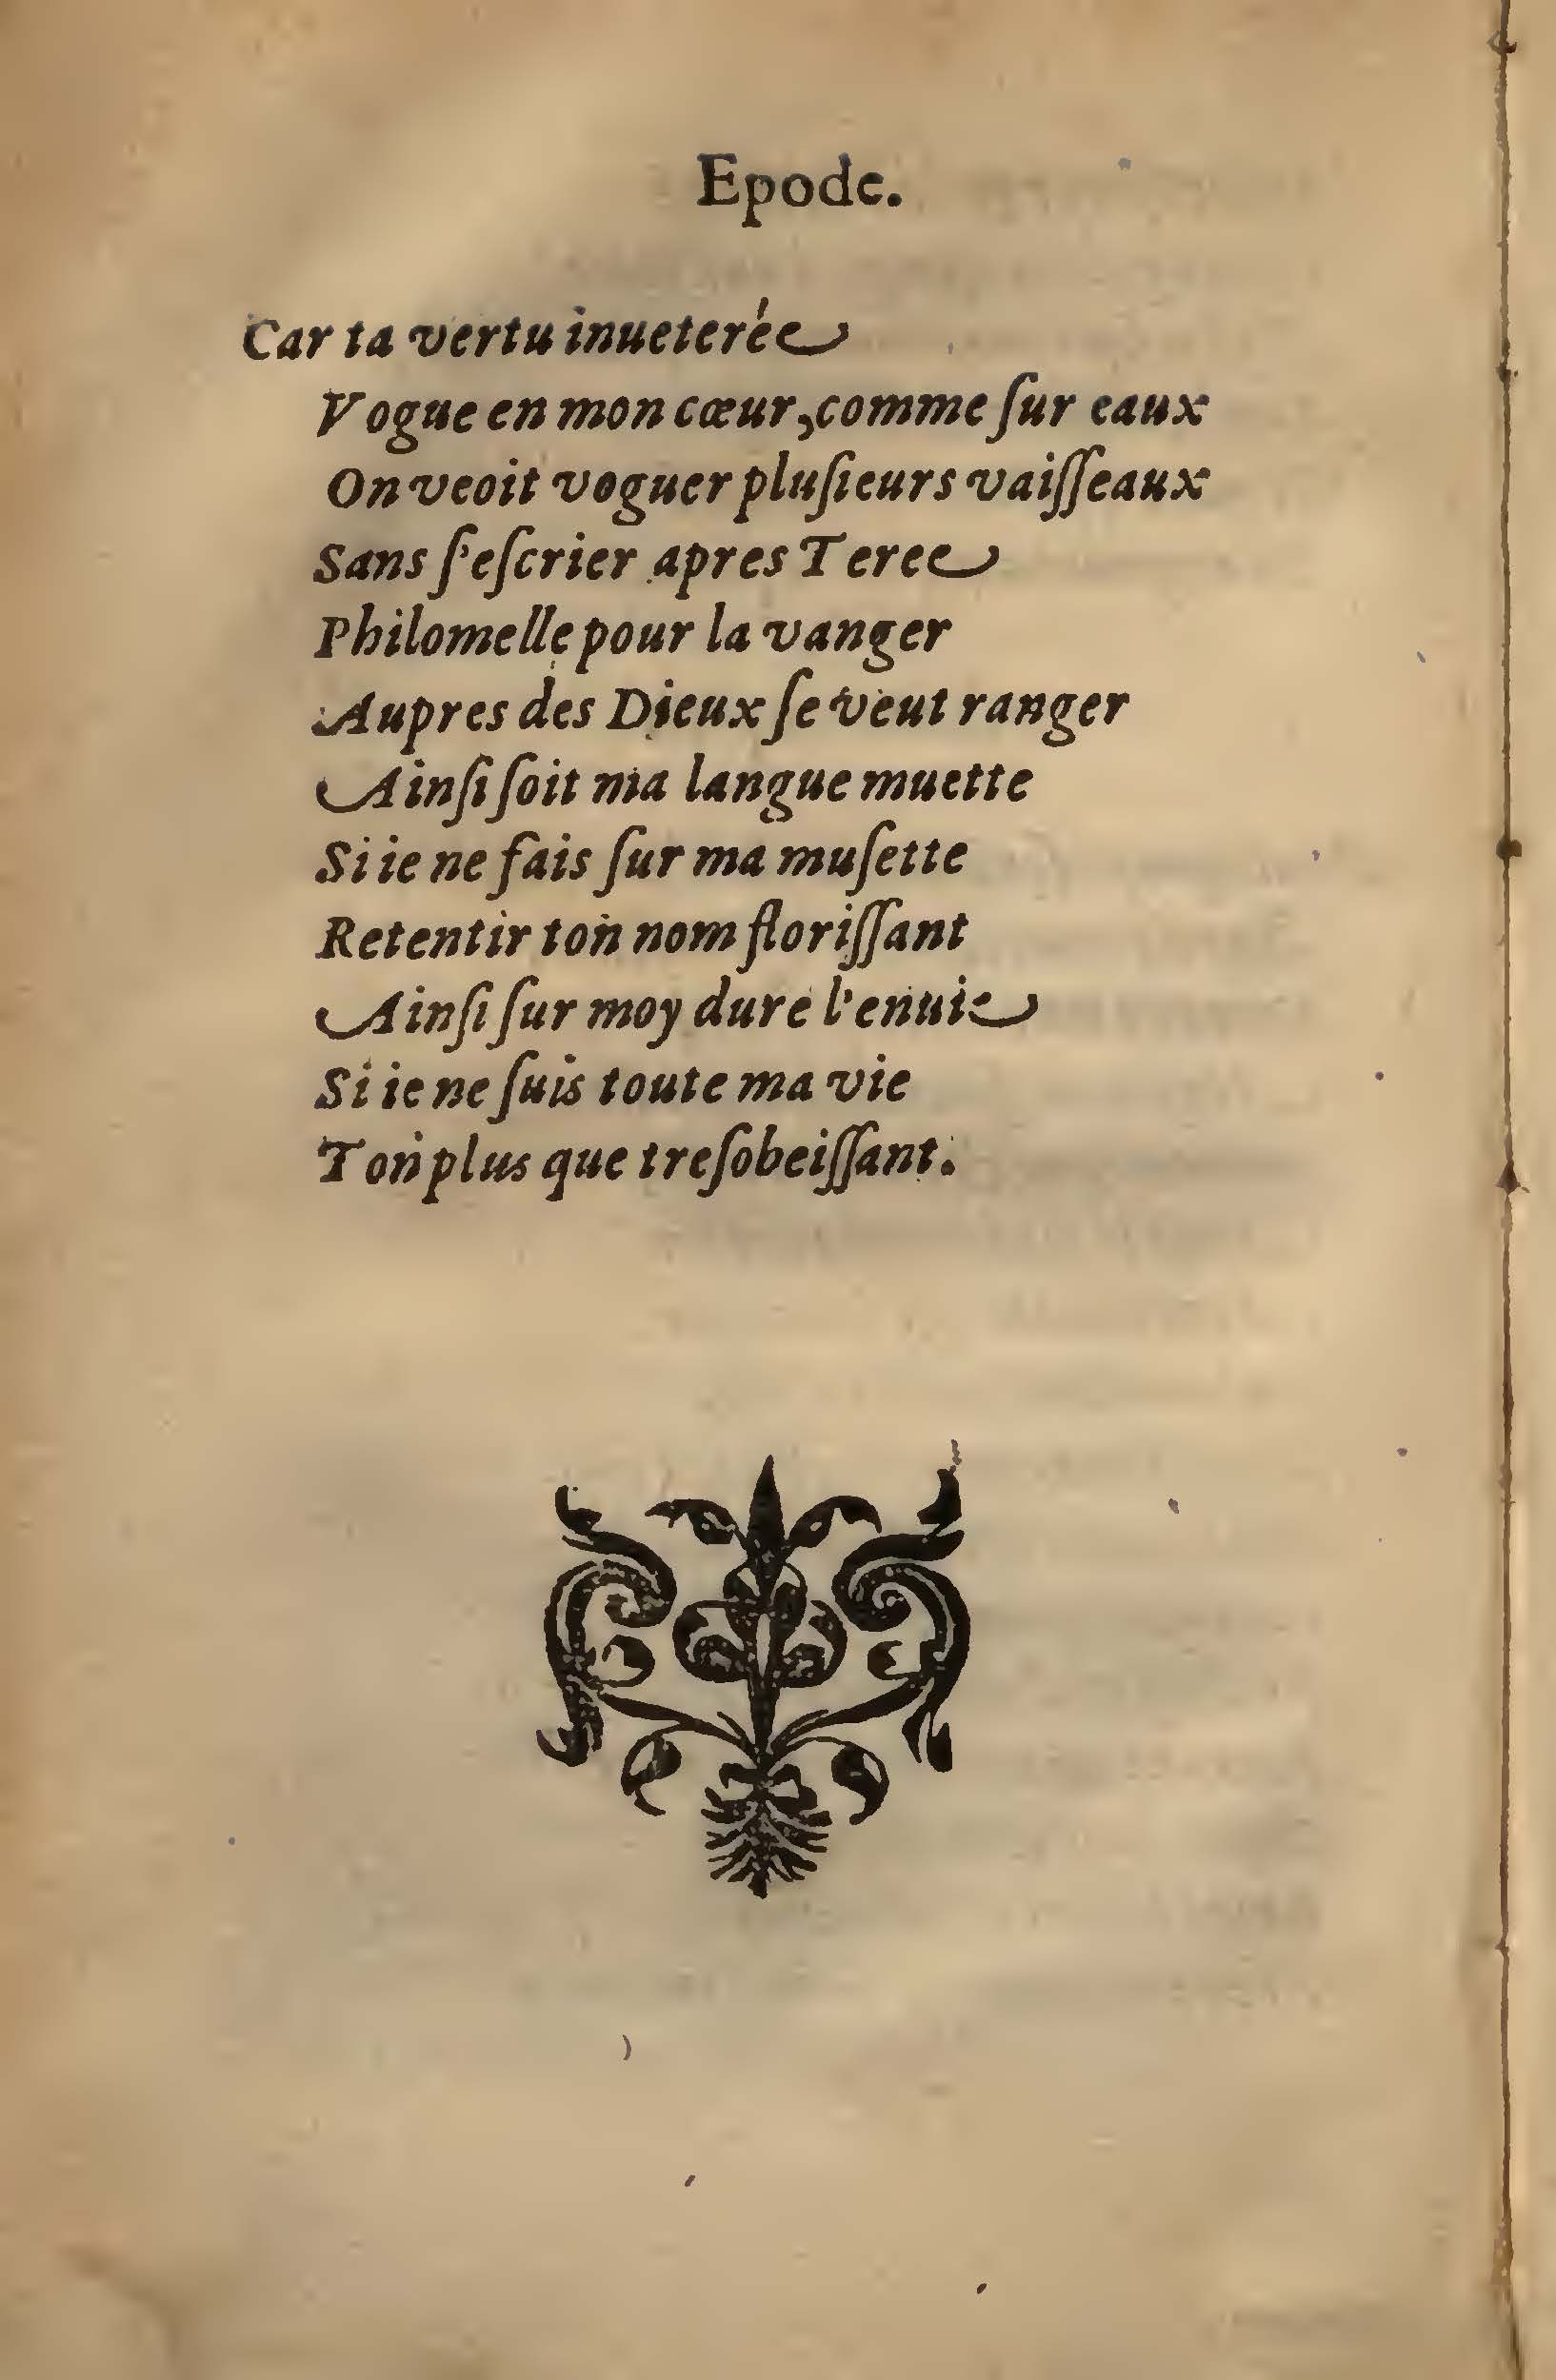 Epode.
Car ta vertu inueterée
Vogue en mon cœur, comme ſur eaux
On veoit voguer pluſieurs vaiſſeaux
Sans ſ'eſcrier apres Teree
Philomelle pour la vanger
Aupres des Dieux ſe veut ranger
Ainſi ſoit ma langue muette
Si ie ne fais ſur ma muſette
Retentir ton nom floriſſant
Ainſi ſur moy dure l'enuie
Si ie ne ſuis toute ma vie
Ton plus que treſobeiſſant.